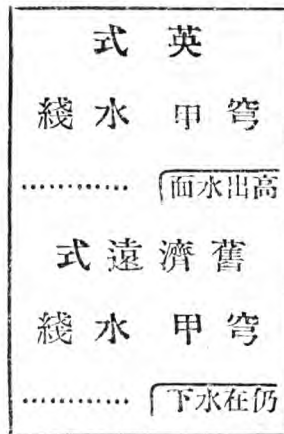 英式
穹甲 水綫
高出水面
舊濟遠式
穹甲 水綫
仍在水下